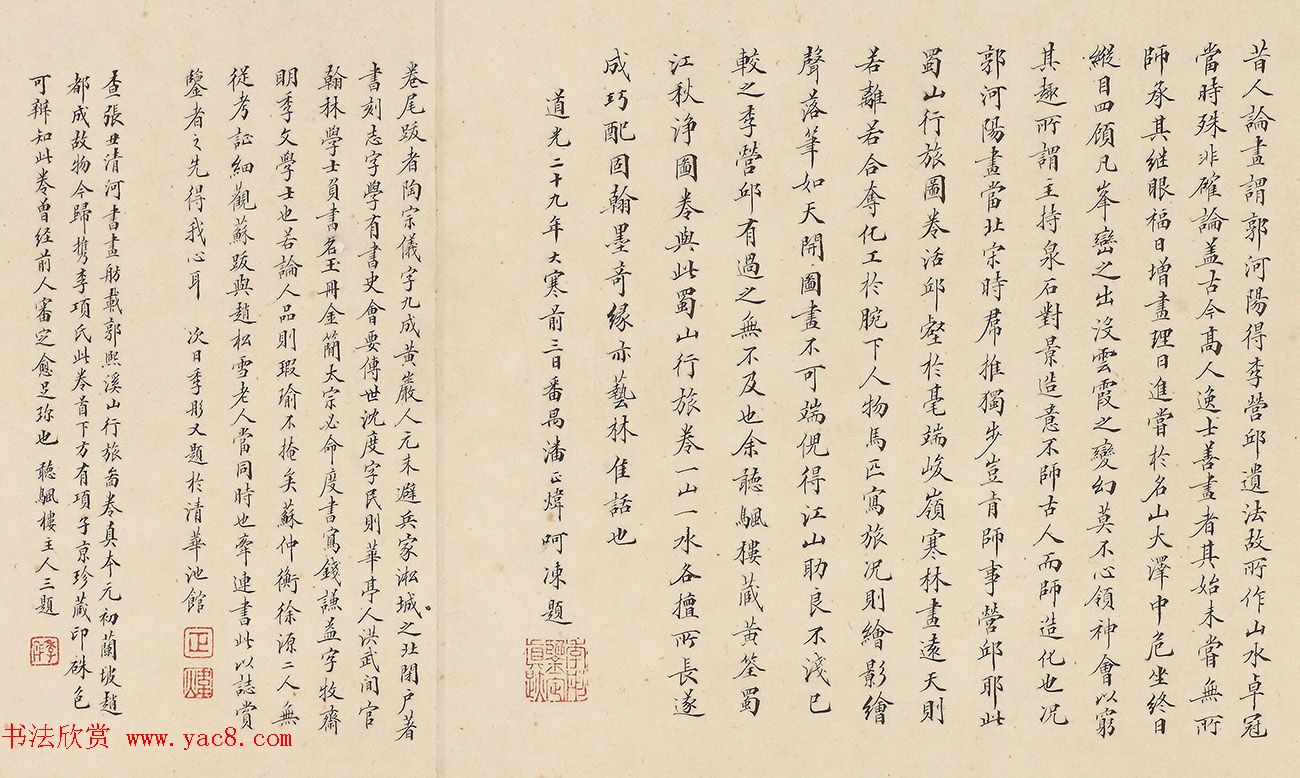 昔人論畫謂郭河陽得李營邱遺法故所作山水卓冠
當時殊非確論蓋古今高人逸士善畫者其始未嘗無所
師承其继眼福日增畫理日進嘗於名山大澤中危坐終日
縱目四顧凡峯巒之出沒雲霞之變幻莫不心領神會以窮
其趣所謂主持泉石對景造意不師古人而師造化也况
郭河陽畫當北宋時羣推獨步豈肯師事營邱耶此
蜀山行旅圖卷活邱壑於毫端峻嶺寒林畫遠天則
若離若合奪化工於腕下人物馬匹寫旅况則繪影繪
聲落筆如天開圖畫不可端倪得江山助良不淺已
較之李營邱有過之無不及也余聽颿樓藏黃筌蜀
江秋浄圖卷與此蜀山行旅卷一山一水各擅所長遂
成巧配因翰墨奇緣亦藝林佳話也
道光二十九年大寒前三日番禺潘正煒呵凍題
卷尾跋者陶宗儀字九成黃巖人元末避兵家淞城之北閉户著
書刻志字學有書史會要傳世沈度字民則華亭人洪武间官
翰林學士負書名玉冊金簡太宗必命度書寫錢謙益字牧齋
明季文學士也若論人品則瑕瑜不掩矣蘇仲衡徐源二人無
從考証細觀蘇跋與趙松雪老人當同時也牽連書此以誌賞
鑒者之先得我心耳 次日季彤又題於清華池館
正煒
查張丑清河書畫舫載郭熙溪山行旅啚卷真本元初蘭坡趙
都成故物今歸檇李項氏此卷首下方有項子京珍藏印硃色
可辨知此卷曾經前人審定愈足珍也 聽颿樓主人三題
书法欣赏 www.yac8.com